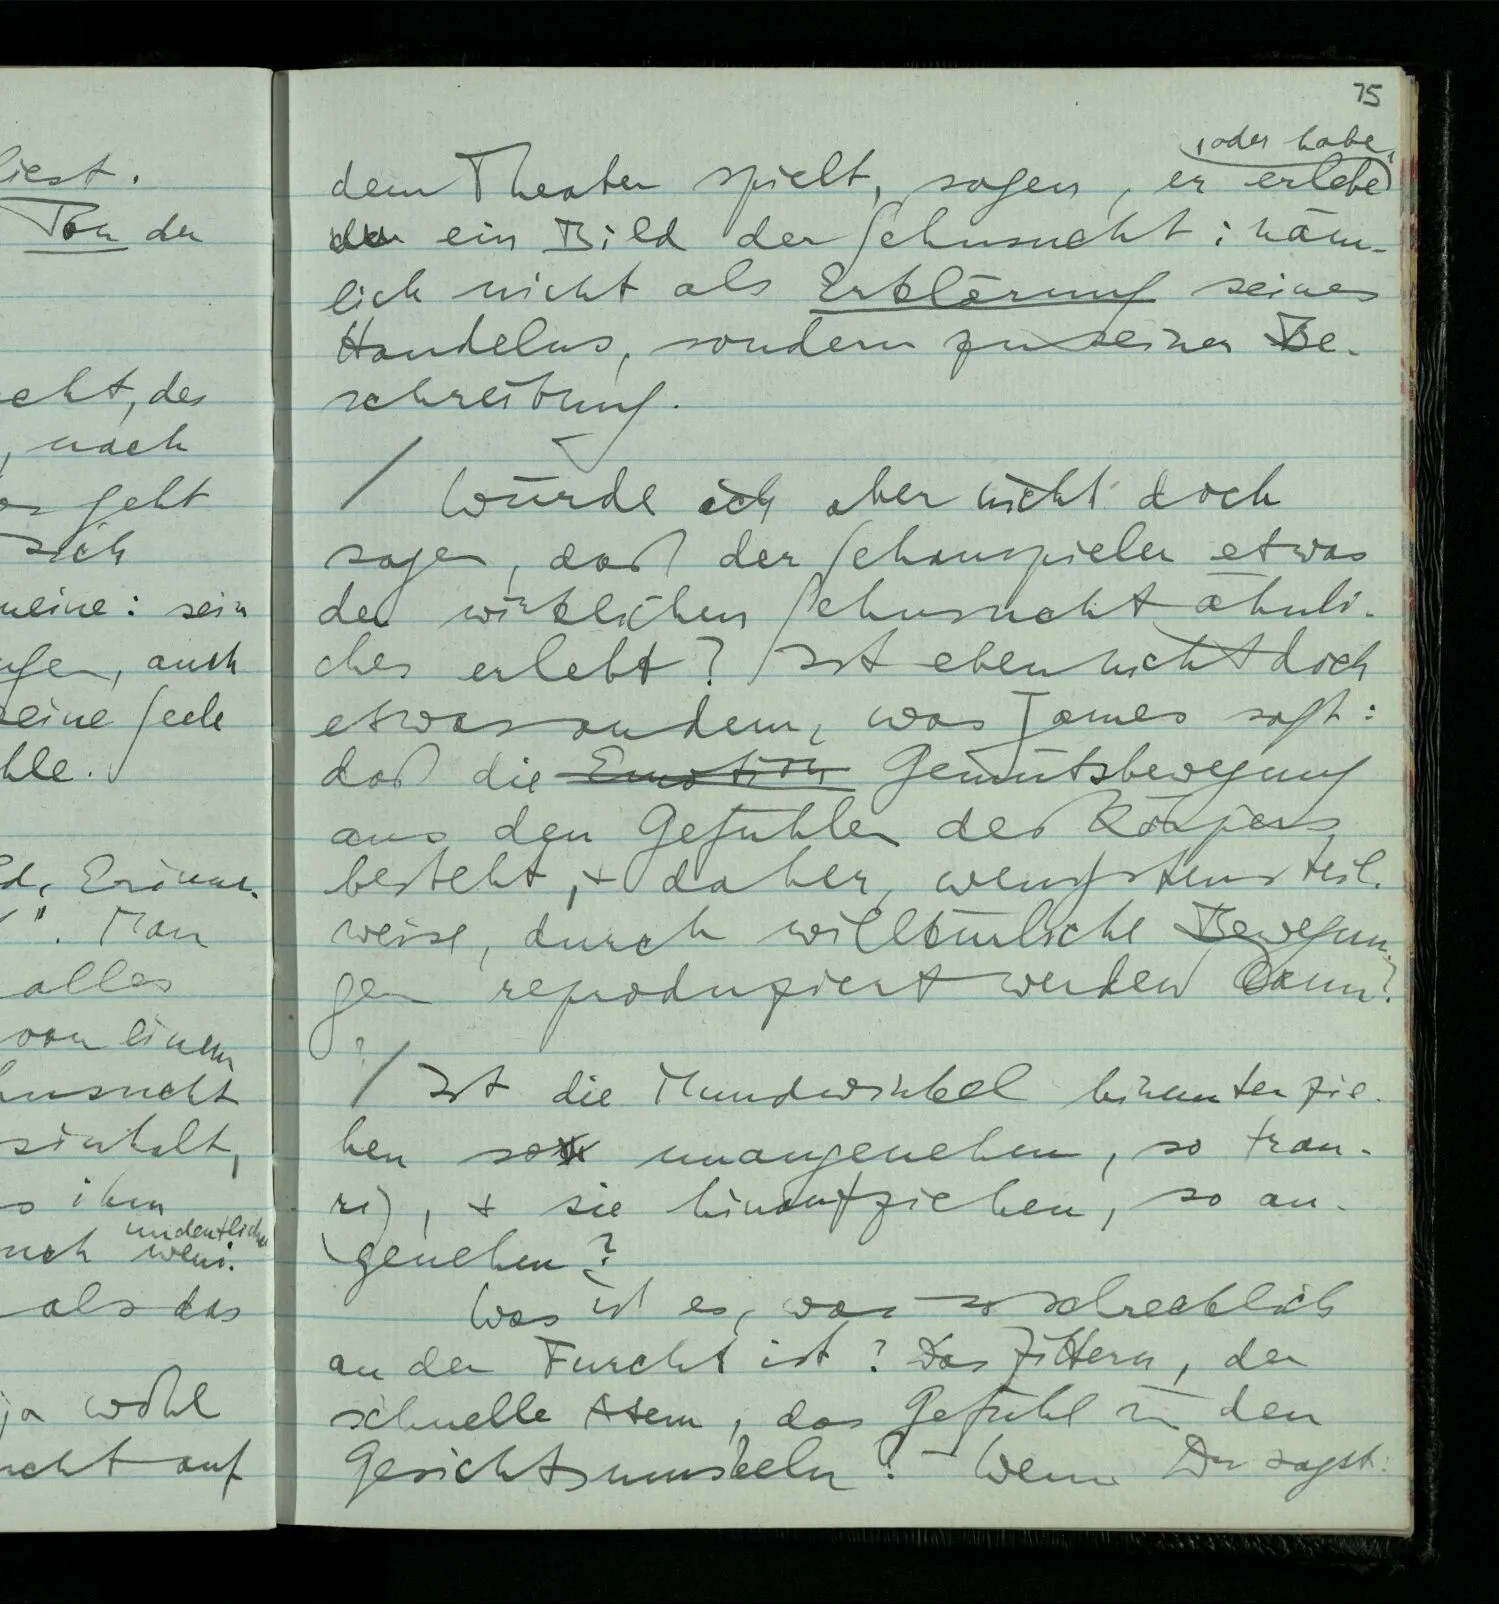 liest.
Ton der
cht, des
, nach
geht
sich
meine: sein
, auch
seine Seele
hle.
". Man
alles
von einem
hnsucht
,
ihm
undeutlicher
weni-
als das
ja wohl
cht auf
75
, oder habe,
dem Theater spielt, sagen, er erlebe
ein Bild der Sehnsucht: näm-
lich nicht als Erklärung seines
Handelns, sondern zu seiner Be-
schreibung.
/ Würde ich aber nicht doch
sagen, daß der Schauspieler etwas
der wirklichen Sehnsucht ähnli-
ches erlebt? Ist eben nicht doch
etwas an dem, was James sagt:
daß die Emotion Gemütsbewegung
aus den Gefühlen des Körpers
besteht, + daher, wenigstens teil-
weise, durch willkürliche Bewegun-
gen reproduziert werden kann?
?
/ Ist die Mundwinkel hinunterzie-
hen so unangenehm, so trau-
rig, + sie hinaufziehen, so an-
genehm?
Was ist es, was so schrecklich
an der Furcht ist? Das Zittern, der
schnelle Atem, das Gefühl in den
Gesichtsmuskeln? – Wenn Du sagst: